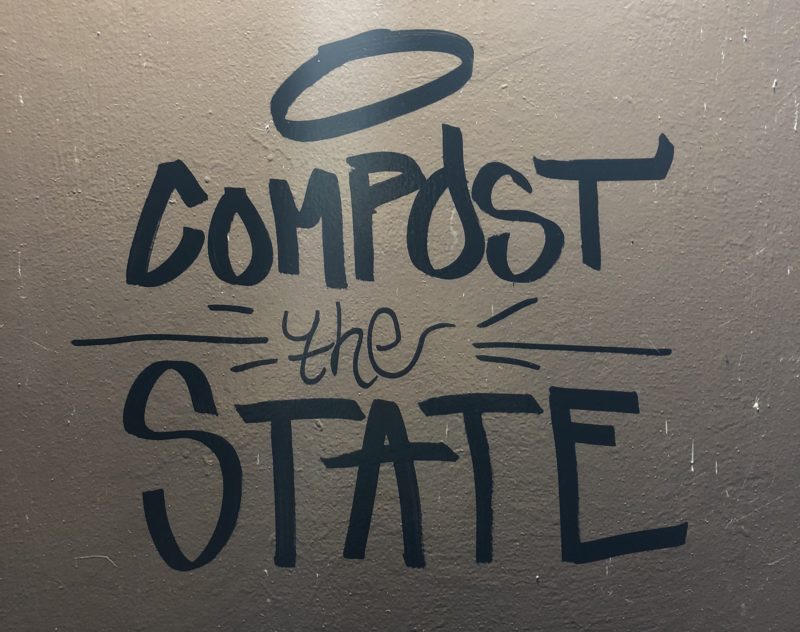 COMPOST
the
STATE